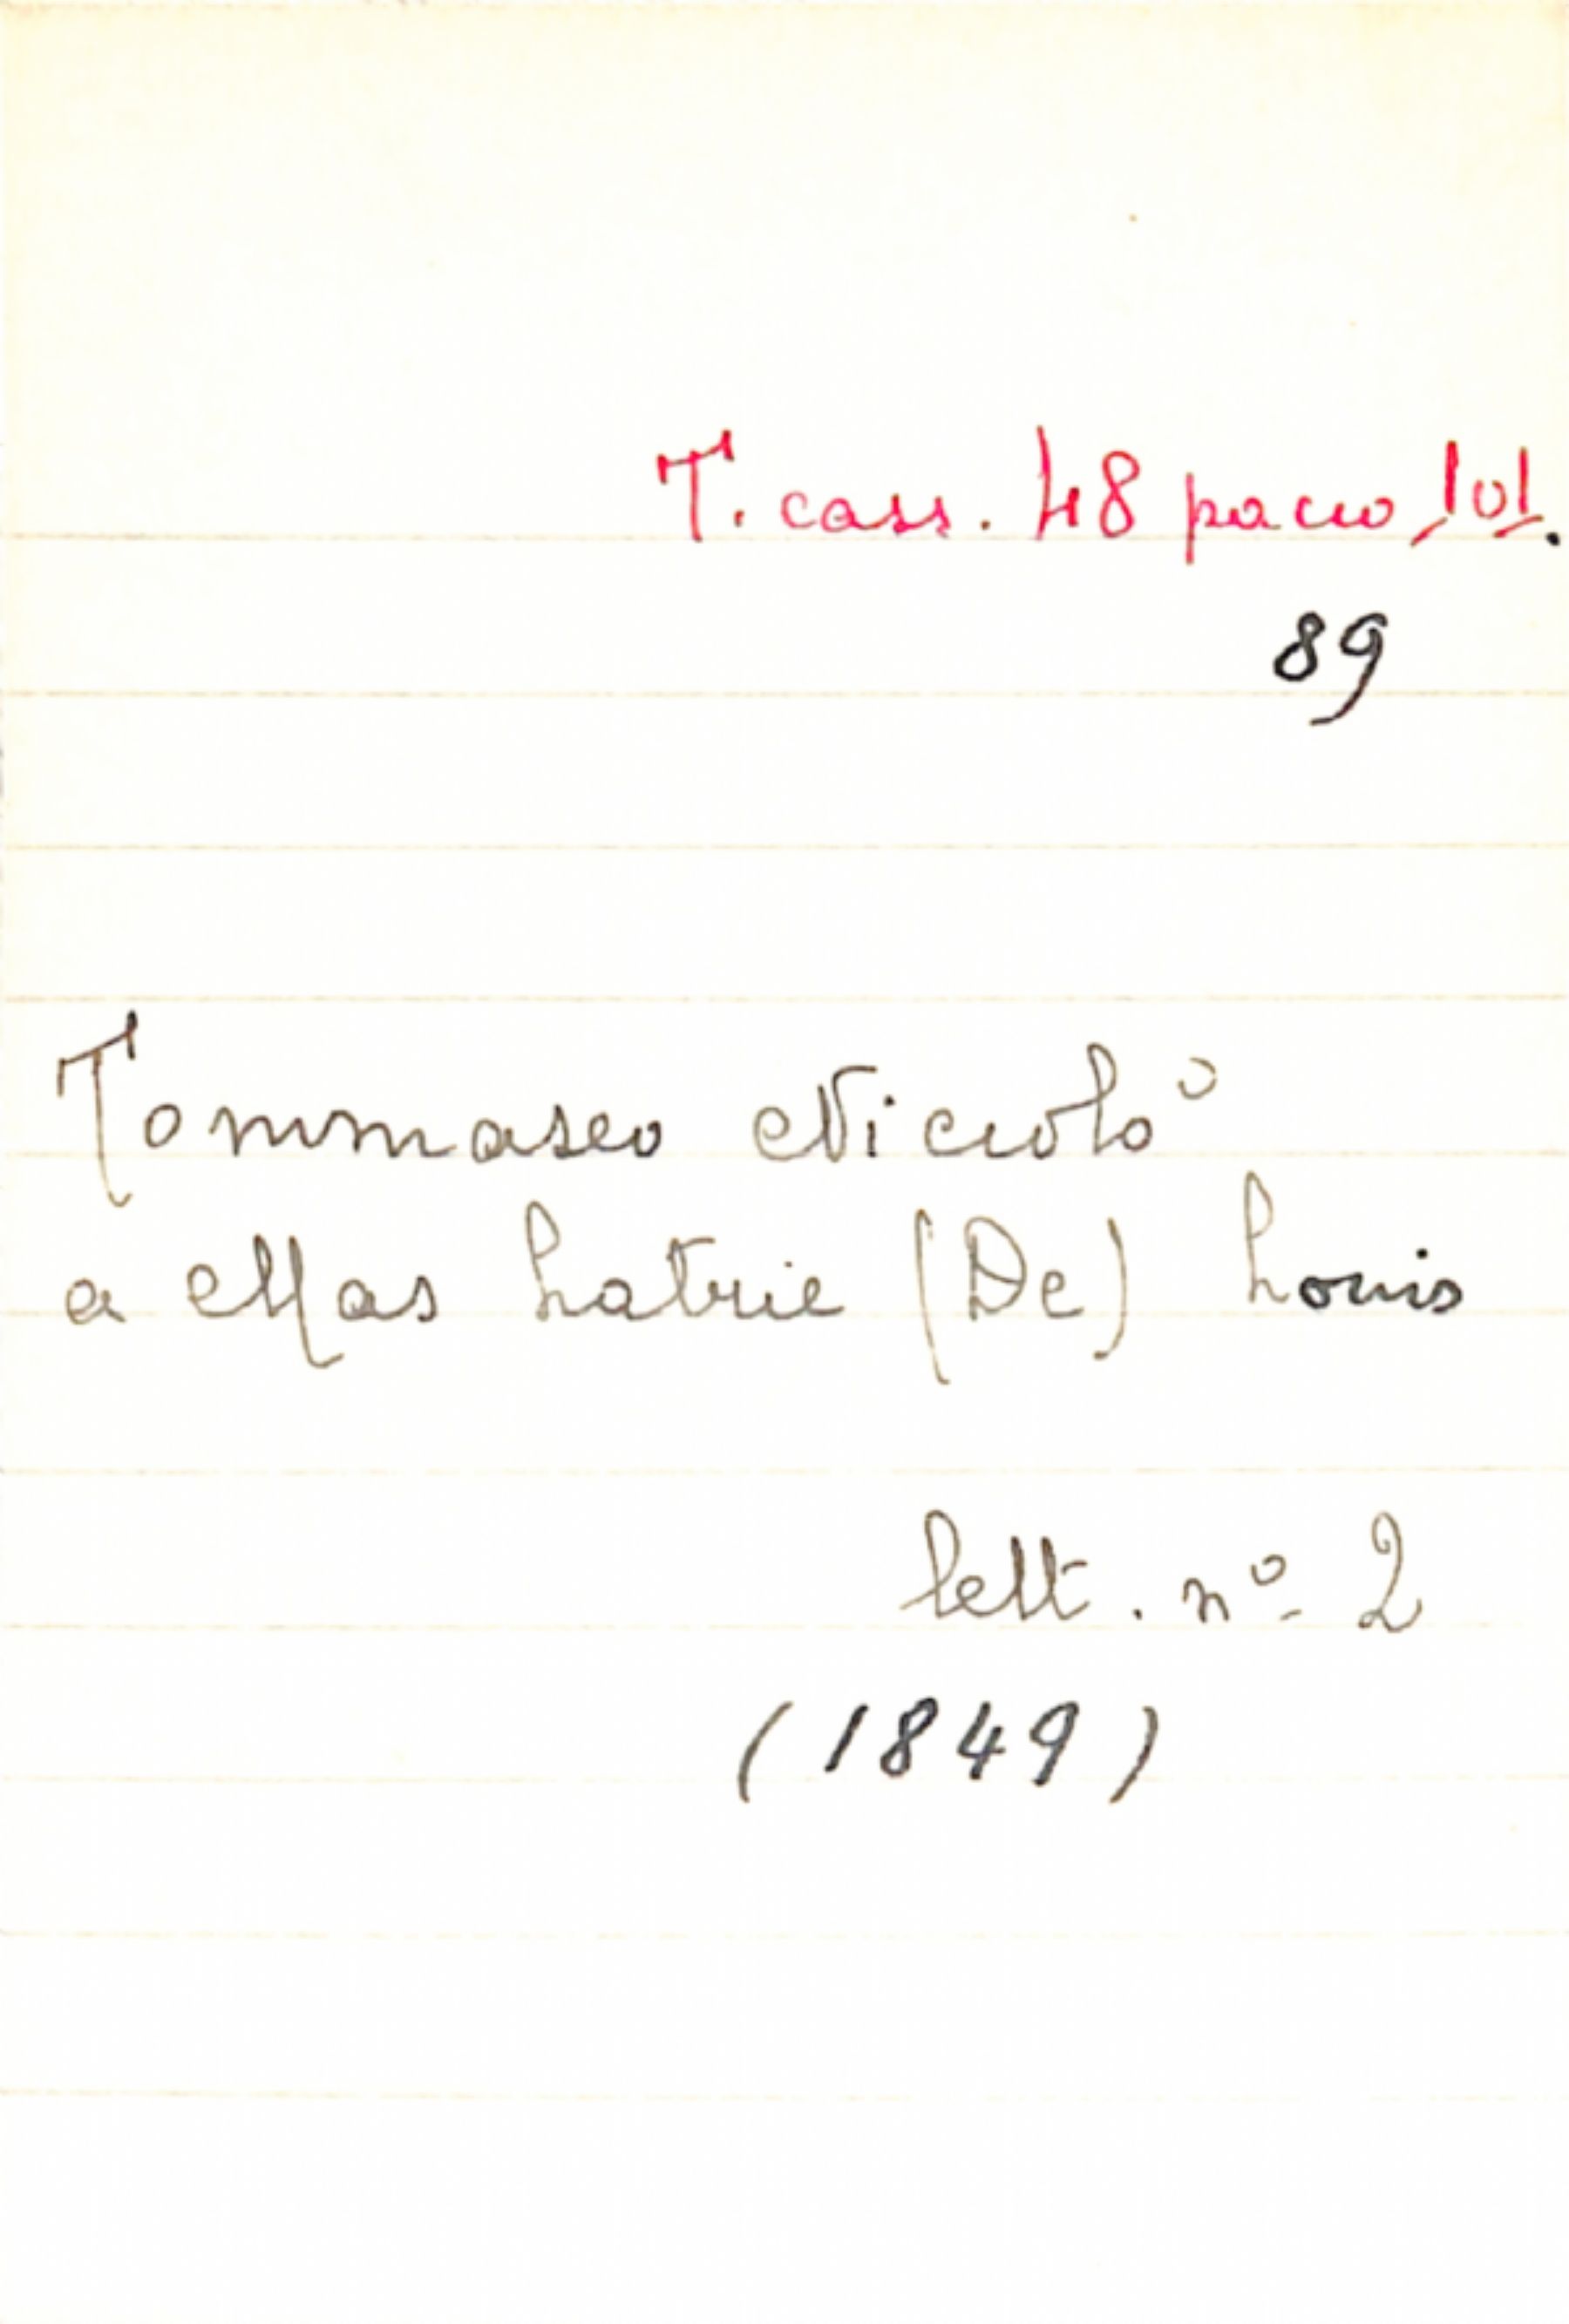 T. cass. 48 pacco 101.
89
Tommaseo Niccolò
a Mas Latrie (De) Louis
lett. nº 2
(1849)